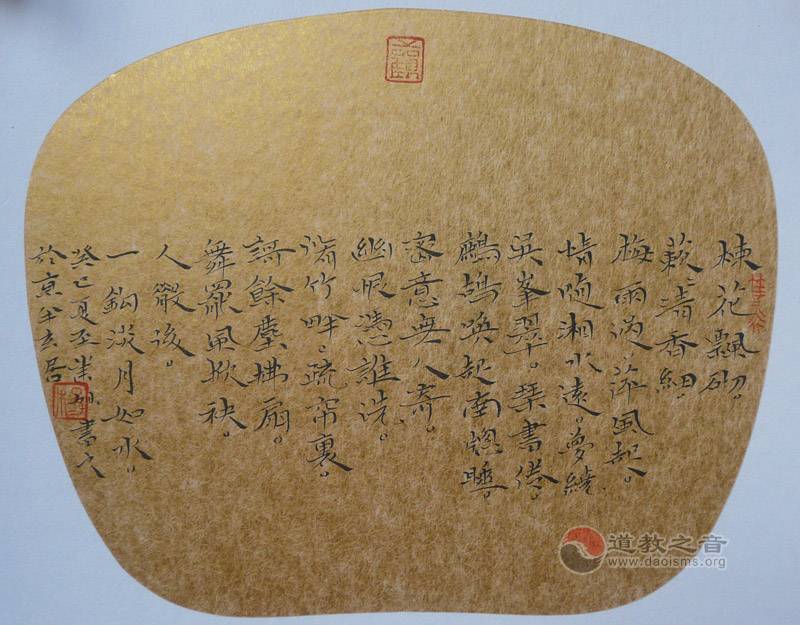 楝花飄砌。
蔌〻清香細。
梅雨過。萍風起。
情隨湘水遠。夢繞
吳峯翠。琴書倦。
鷓鴣喚起南窓睡。
密意無人寄。
幽恨憑誰洗。
脩竹畔。疏帘裏。
謌餘塵拂扇。
舞罷風掀袂。
人散後。
一鈎淡月如水。
癸巳夏至書
於京玄居
道教之音
www.daoisms.org